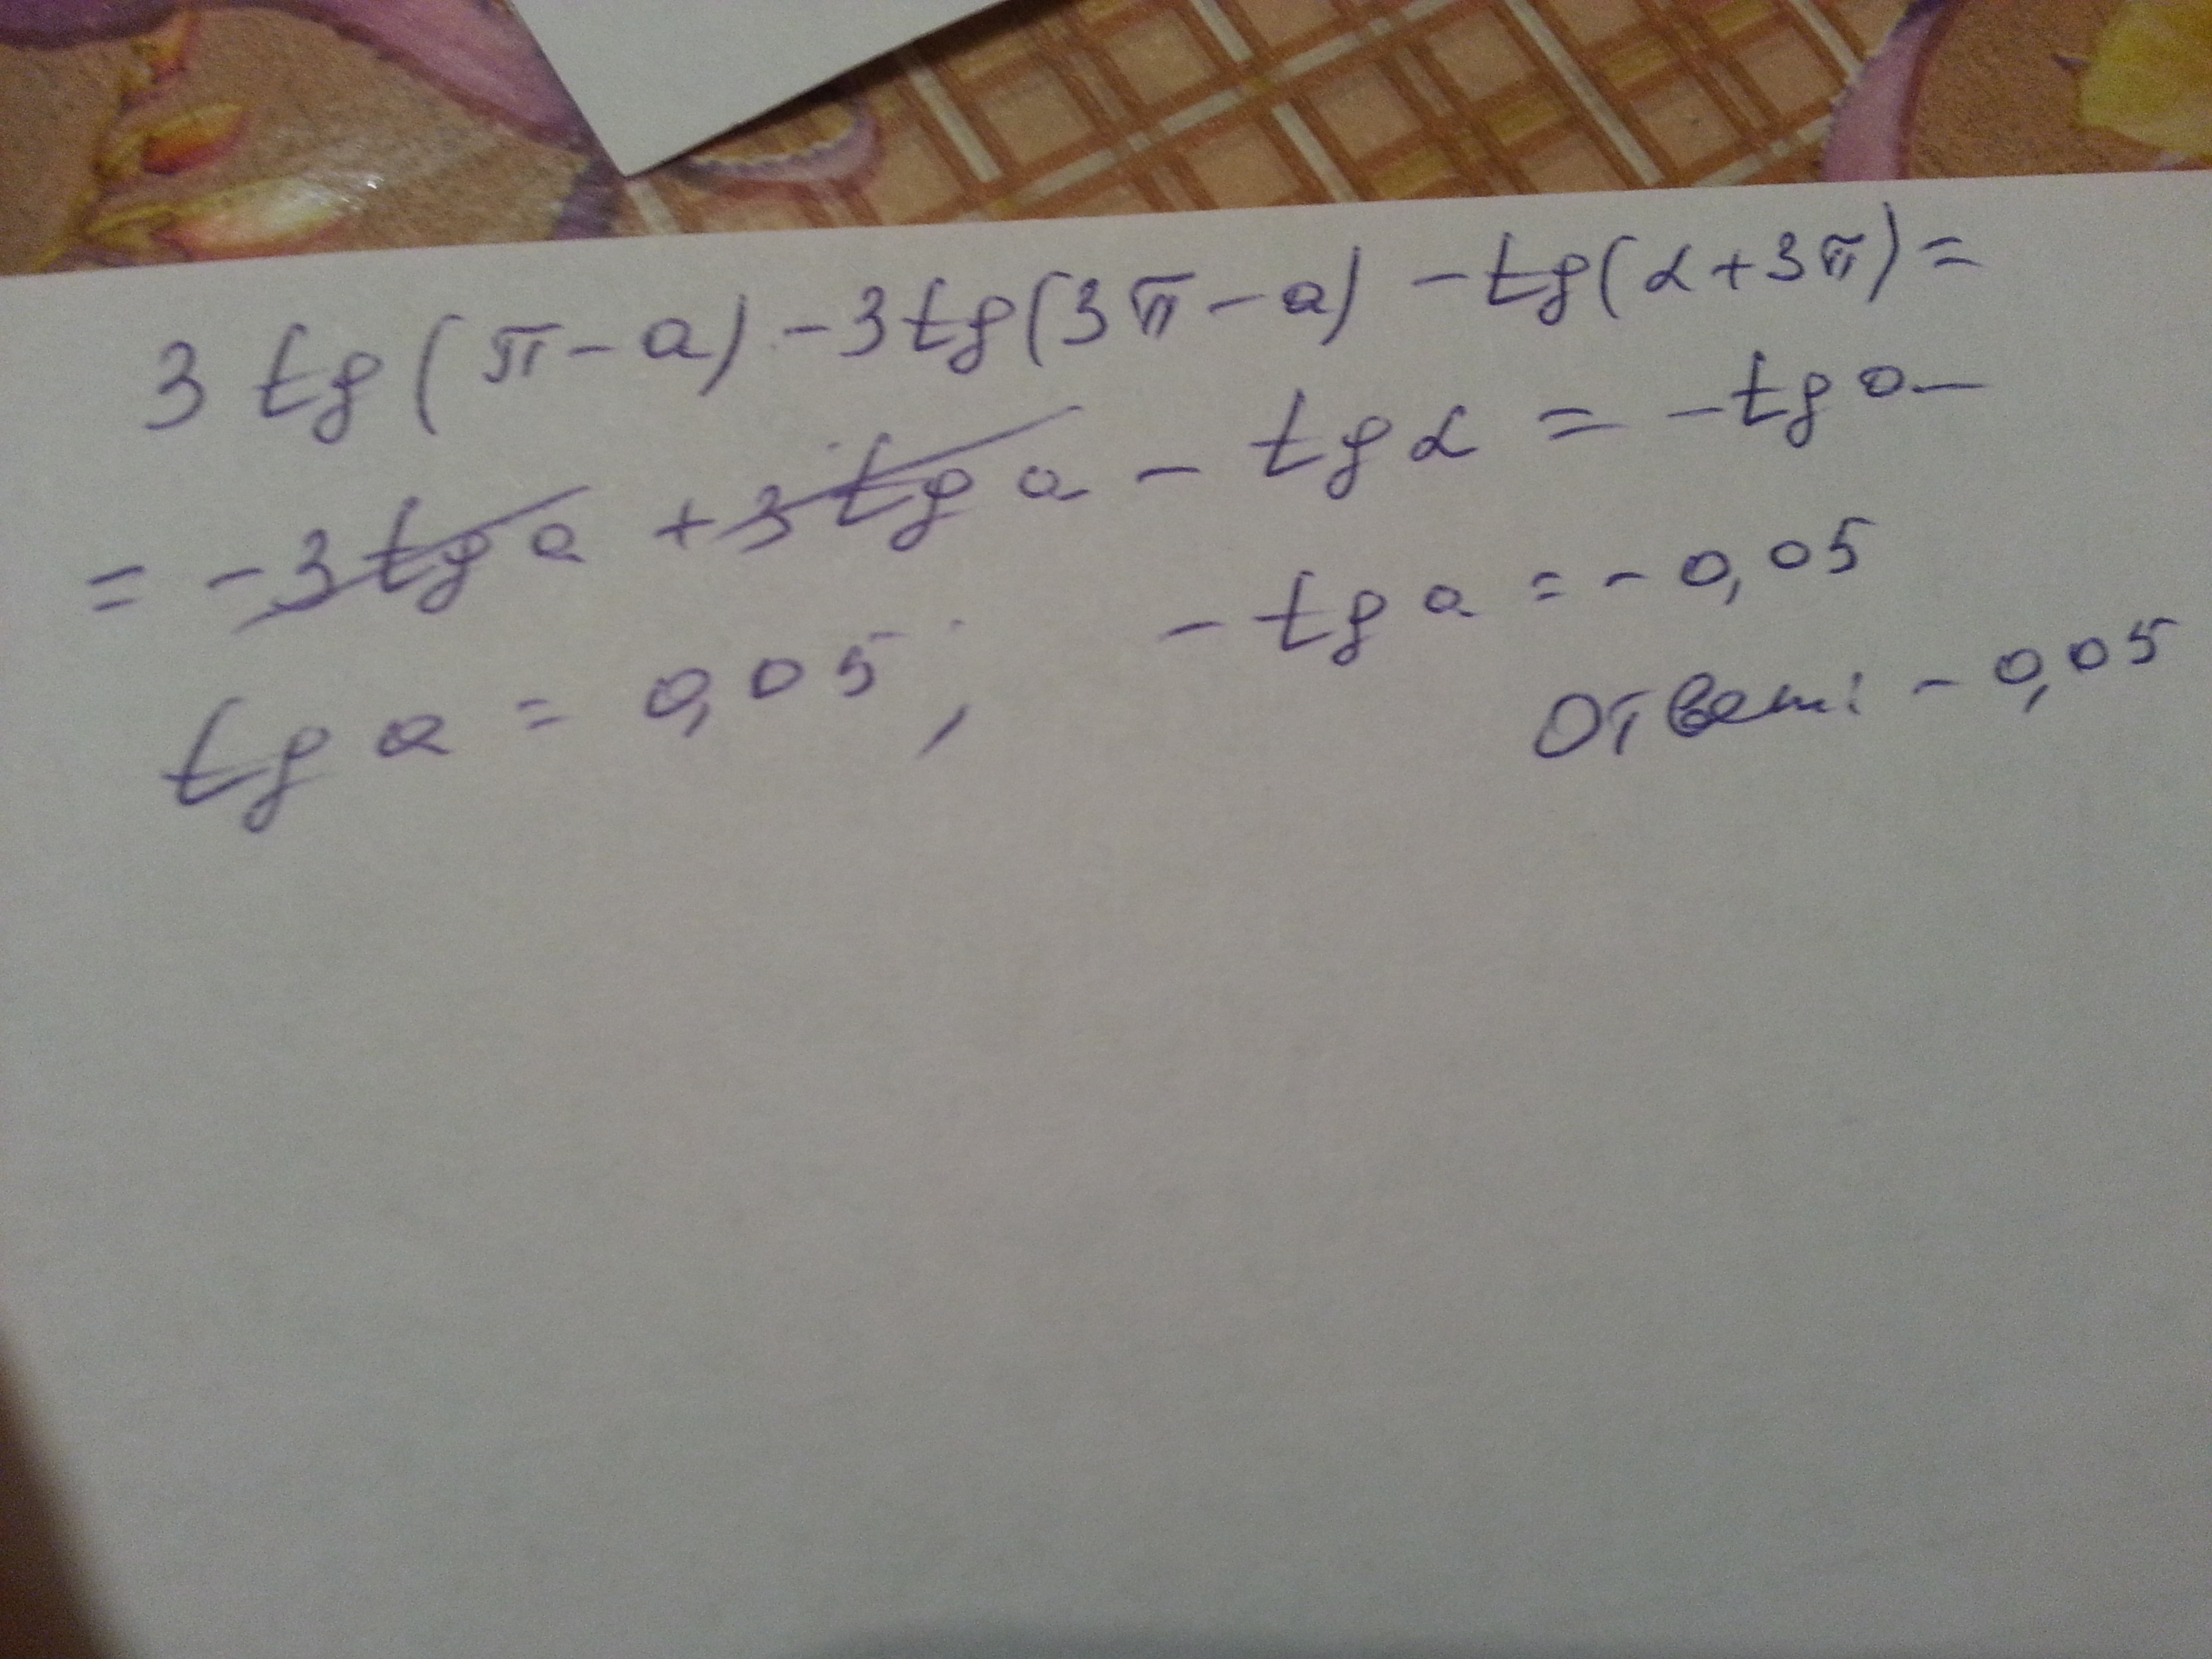 3 tg(π-a) -3tg(3π-a) -tg(α+3π)=
= -3tg a +3tg a - tg α = -tg a
tg a = 0,05, -tg a = -0,05
Ответ: -0,05